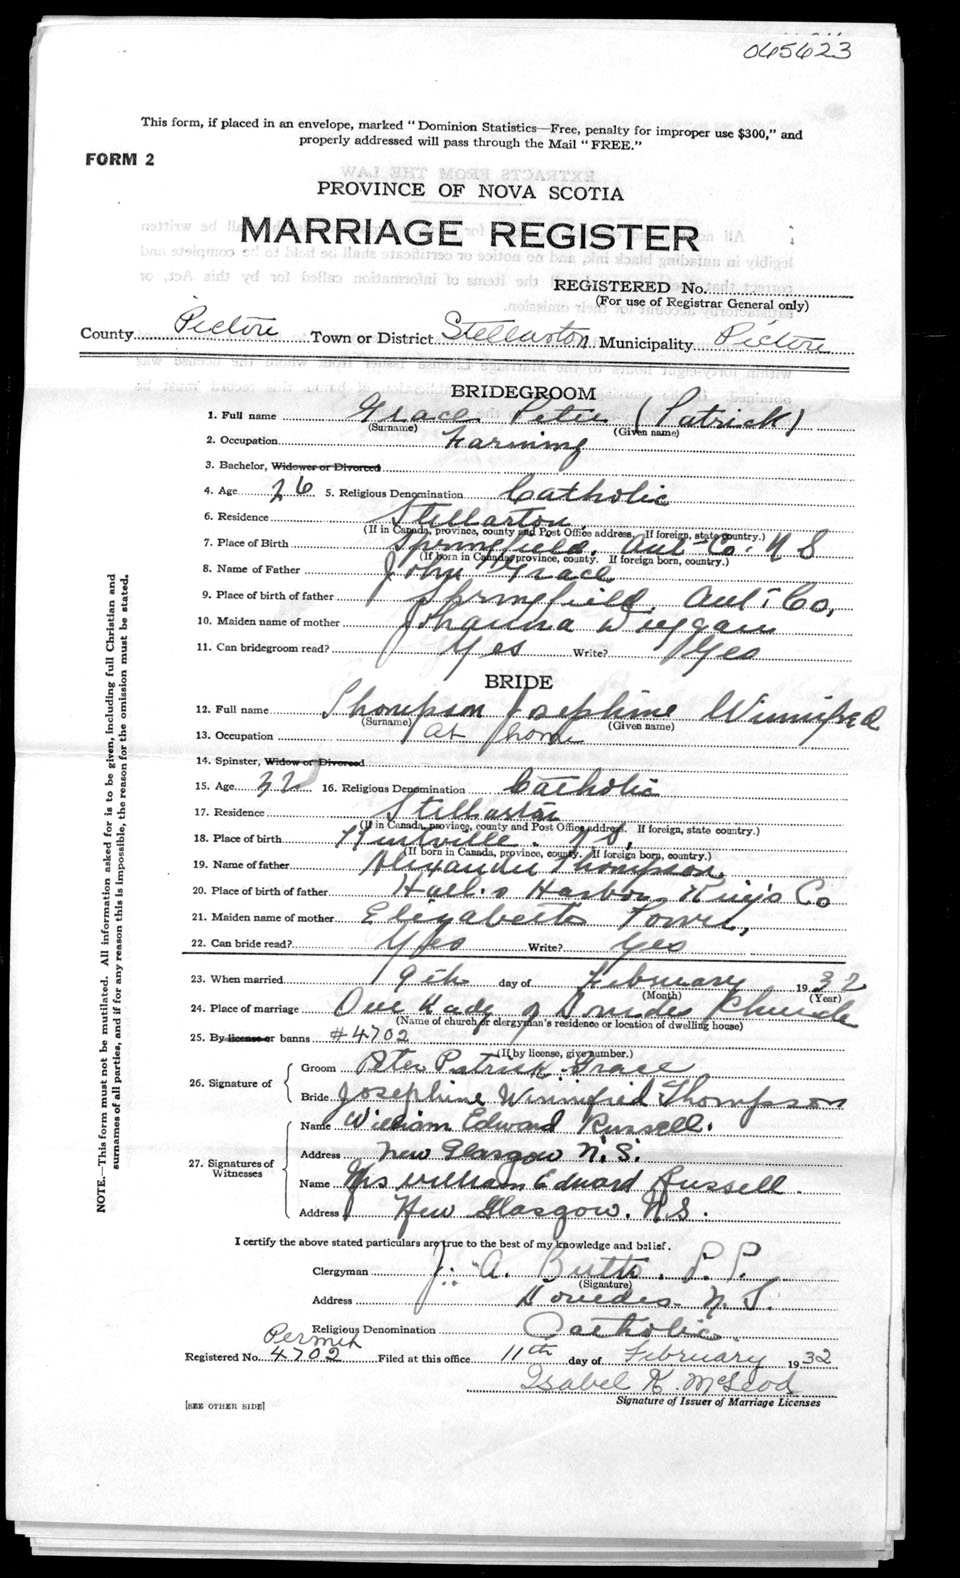 045623
This form, if placed in an envelope, marked "Dominion Statistics—Free, penalty for improper use $300," and
properly addressed will pass through the Mail "FREE."
FORM 2
PROVINCE OF NOVA SCOTIA
MARRIAGE REGISTER
REGISTERED No.
(For use of Registrar General only)
County Pictou Town or District Stellarton Municipality Pictou
BRIDEGROOM
1. Full name Grace Peter (Patrick)
(Surname) (Given name)
2. Occupation Farming
3. Bachelor, Widower or Divorced
4. Age 26 5. Religious Denomination Catholic
6. Residence Stellarton
(If in Canada, province, county and Post Office address. If foreign, state country.)
7. Place of Birth Springfield, Ant Co. N S
(If born in Canada, province, county. If foreign born, country.)
8. Name of Father John Grace
9. Place of birth of father Springfield, Ant. Co,
10. Maiden name of mother Johanna
11. Can bridegroom read? Yes Write? Yes
BRIDE
12. Full name Thompson Josephine Winnifred
(Surname) (Given name)
13. Occupation at home
14. Spinster, Widow or Divorced
15. Age 32 16. Religious Denomination Catholic
17. Residence Stellarton
(If in Canada, province, county and Post Office address. If foreign, state country.)
18. Place of birth Kentville. N.S,
(If born in Canada, province, county. If foreign born, country.)
19. Name of father Alexander Thompson
20. Place of birth of father Hall's Harbor Kings Co
21. Maiden name of mother Elizabeth
22. Can bride read? Yes Write? Yes
23. When married 9th day of February 1932
(Month) (Year)
24. Place of marriage Our Lady of Lourdes Church
(Name of church or clergyman's residence or location of dwelling house)
25. By license or banns #4702
(If by license, give number.)
26. Signature of
Groom Peter Patrick Grace
Bride Josephine Winnifred Thompson
27. Signatures of Witnesses
Name William Edward Russell.
Address New Glasgow N.S.
Name Mrs William Edward Russell.
Address New Glasgow. N.S.
I certify the above stated particulars are true to the best of my knowledge and belief.
Clergyman J. A. Butts. P. P.
(Signature)
Address Lourdes. N. S.
Religious Denomination Catholic.
Permit
Registered No. 4702 Filed at this office 11th day of February 1932
Isabel K. McLeod
Signature of Issuer of Marriage Licenses
[SEE OTHER SIDE]
NOTE.—This form must not be mutilated. All information asked for is to be given, including full Christian and
surnames of all parties, and if for any reason this is impossible, the reason for the omission must be stated.